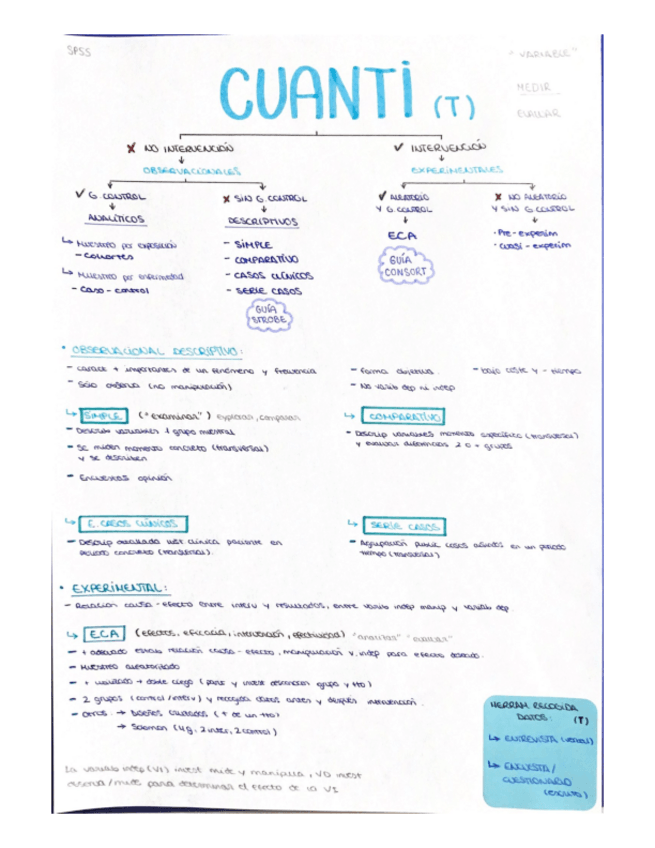 SPSS
"VARIABLE"
CUANTI (T)
MEDIR
EVALUAR
✗ NO INTERVENCIÓN
✓ INTERVENCIÓN
OBSERVACIONALES
EXPERIMENTALES
✓ G. CONTROL
✗ SIN G. CONTROL
✓ ALEATORIO
Y G. CONTROL
✗ NO ALEATORIO
Y SIN G CONTROL
ANALÍTICOS
DESCRIPTIVOS
ECA
- Pre-experim
- Cuasi-experim
↳ Muestreo por exposición
- Cohortes
↳ Muestreo por enfermedad
- Caso-control
- SIMPLE
- COMPARATIVO
- CASOS CLÍNICOS
- SERIE CASOS
GUÍA
CONSORT
GUÍA
STROBE
• OBSERVACIONAL DESCRIPTIVO:
- caract + importantes de un fenómeno y frecuencia
- Solo observa (no manipulación)
- Forma objetiva
- No variab dep ni indep
- bajo coste y - tiempo
↳ SIMPLE ("examinar") explorar, comparar
- Describ variables 1 grupo muestral
- Se miden momento concreto (transversal)
y se describen
- Encuestas opinión
↳ COMPARATIVO
- Descrip variables momento específico (transversal)
y evaluar diferencias 2 o + grupos
↳ E. CASOS CLÍNICOS
- Descrip detallada hist clínica paciente en
periodo concreto (transversal).
↳ SERIE CASOS
- Agrupación casos aislados en un periodo
tiempo (transversal)
• EXPERIMENTAL:
- Relación causa-efecto entre interv y resultados, entre variab indep manip y variab dep
↳ ECA (efectos, eficacia, intervención, efectividad) "analizar" "evaluar"
- + adecuado estab relación causa-efecto, manipulación v. indep para efecto deseado.
- Muestreo aleatorizado
- + utilizado → doble ciego (partc y invest desconocen grupo y tto)
- 2 grupos (control/interv) y recogida datos antes y después intervención.
- Otros: → Diseños cruzados (+ de un tto)
→ Solomon (4g, 2 inter, 2 control)
HERRAM RECOGIDA
DATOS: (T)
↳ ENTREVISTA (verbal)
↳ ENCUESTA /
CUESTIONARIO
(escrita)
La variab indep (VI) invest mide y manipula, VD invest
observa/mide para determinar el efecto de la VI